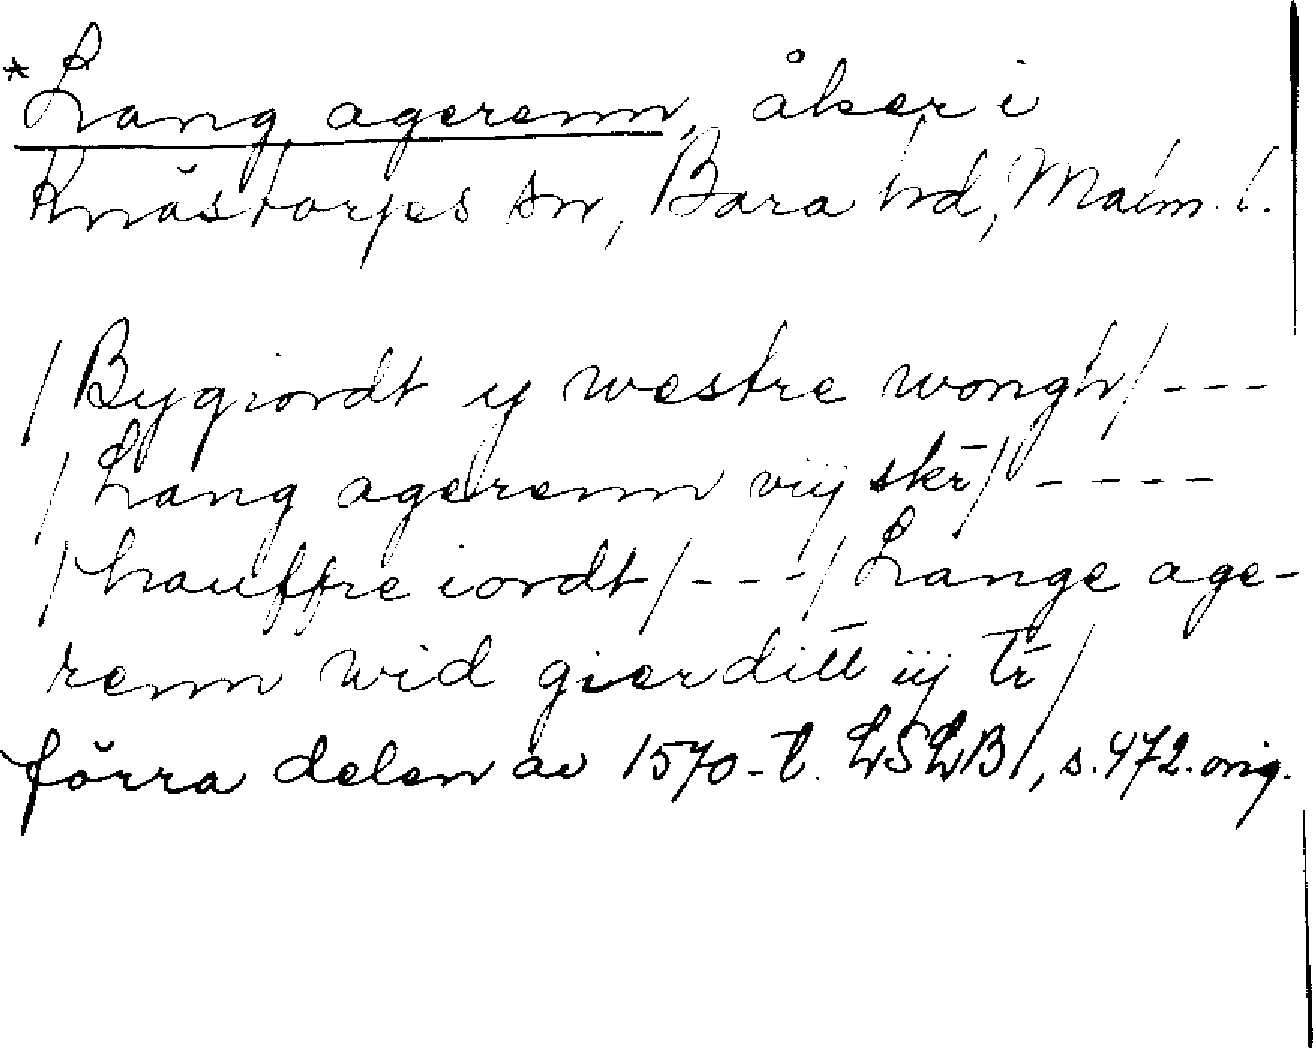 *Lang agerenn, åker i
Knästorps sn, Bara hd, Malm. l.
/Bygiordt y westre wongh/ - - -
/Lang agerenn viij skr̄/ - - - -
/hauffre iordt/ - - - /Lange age-
renn wid gierditt iij tr̄/
förra delen av 1570-t. LSLB1, s. 472. orig.